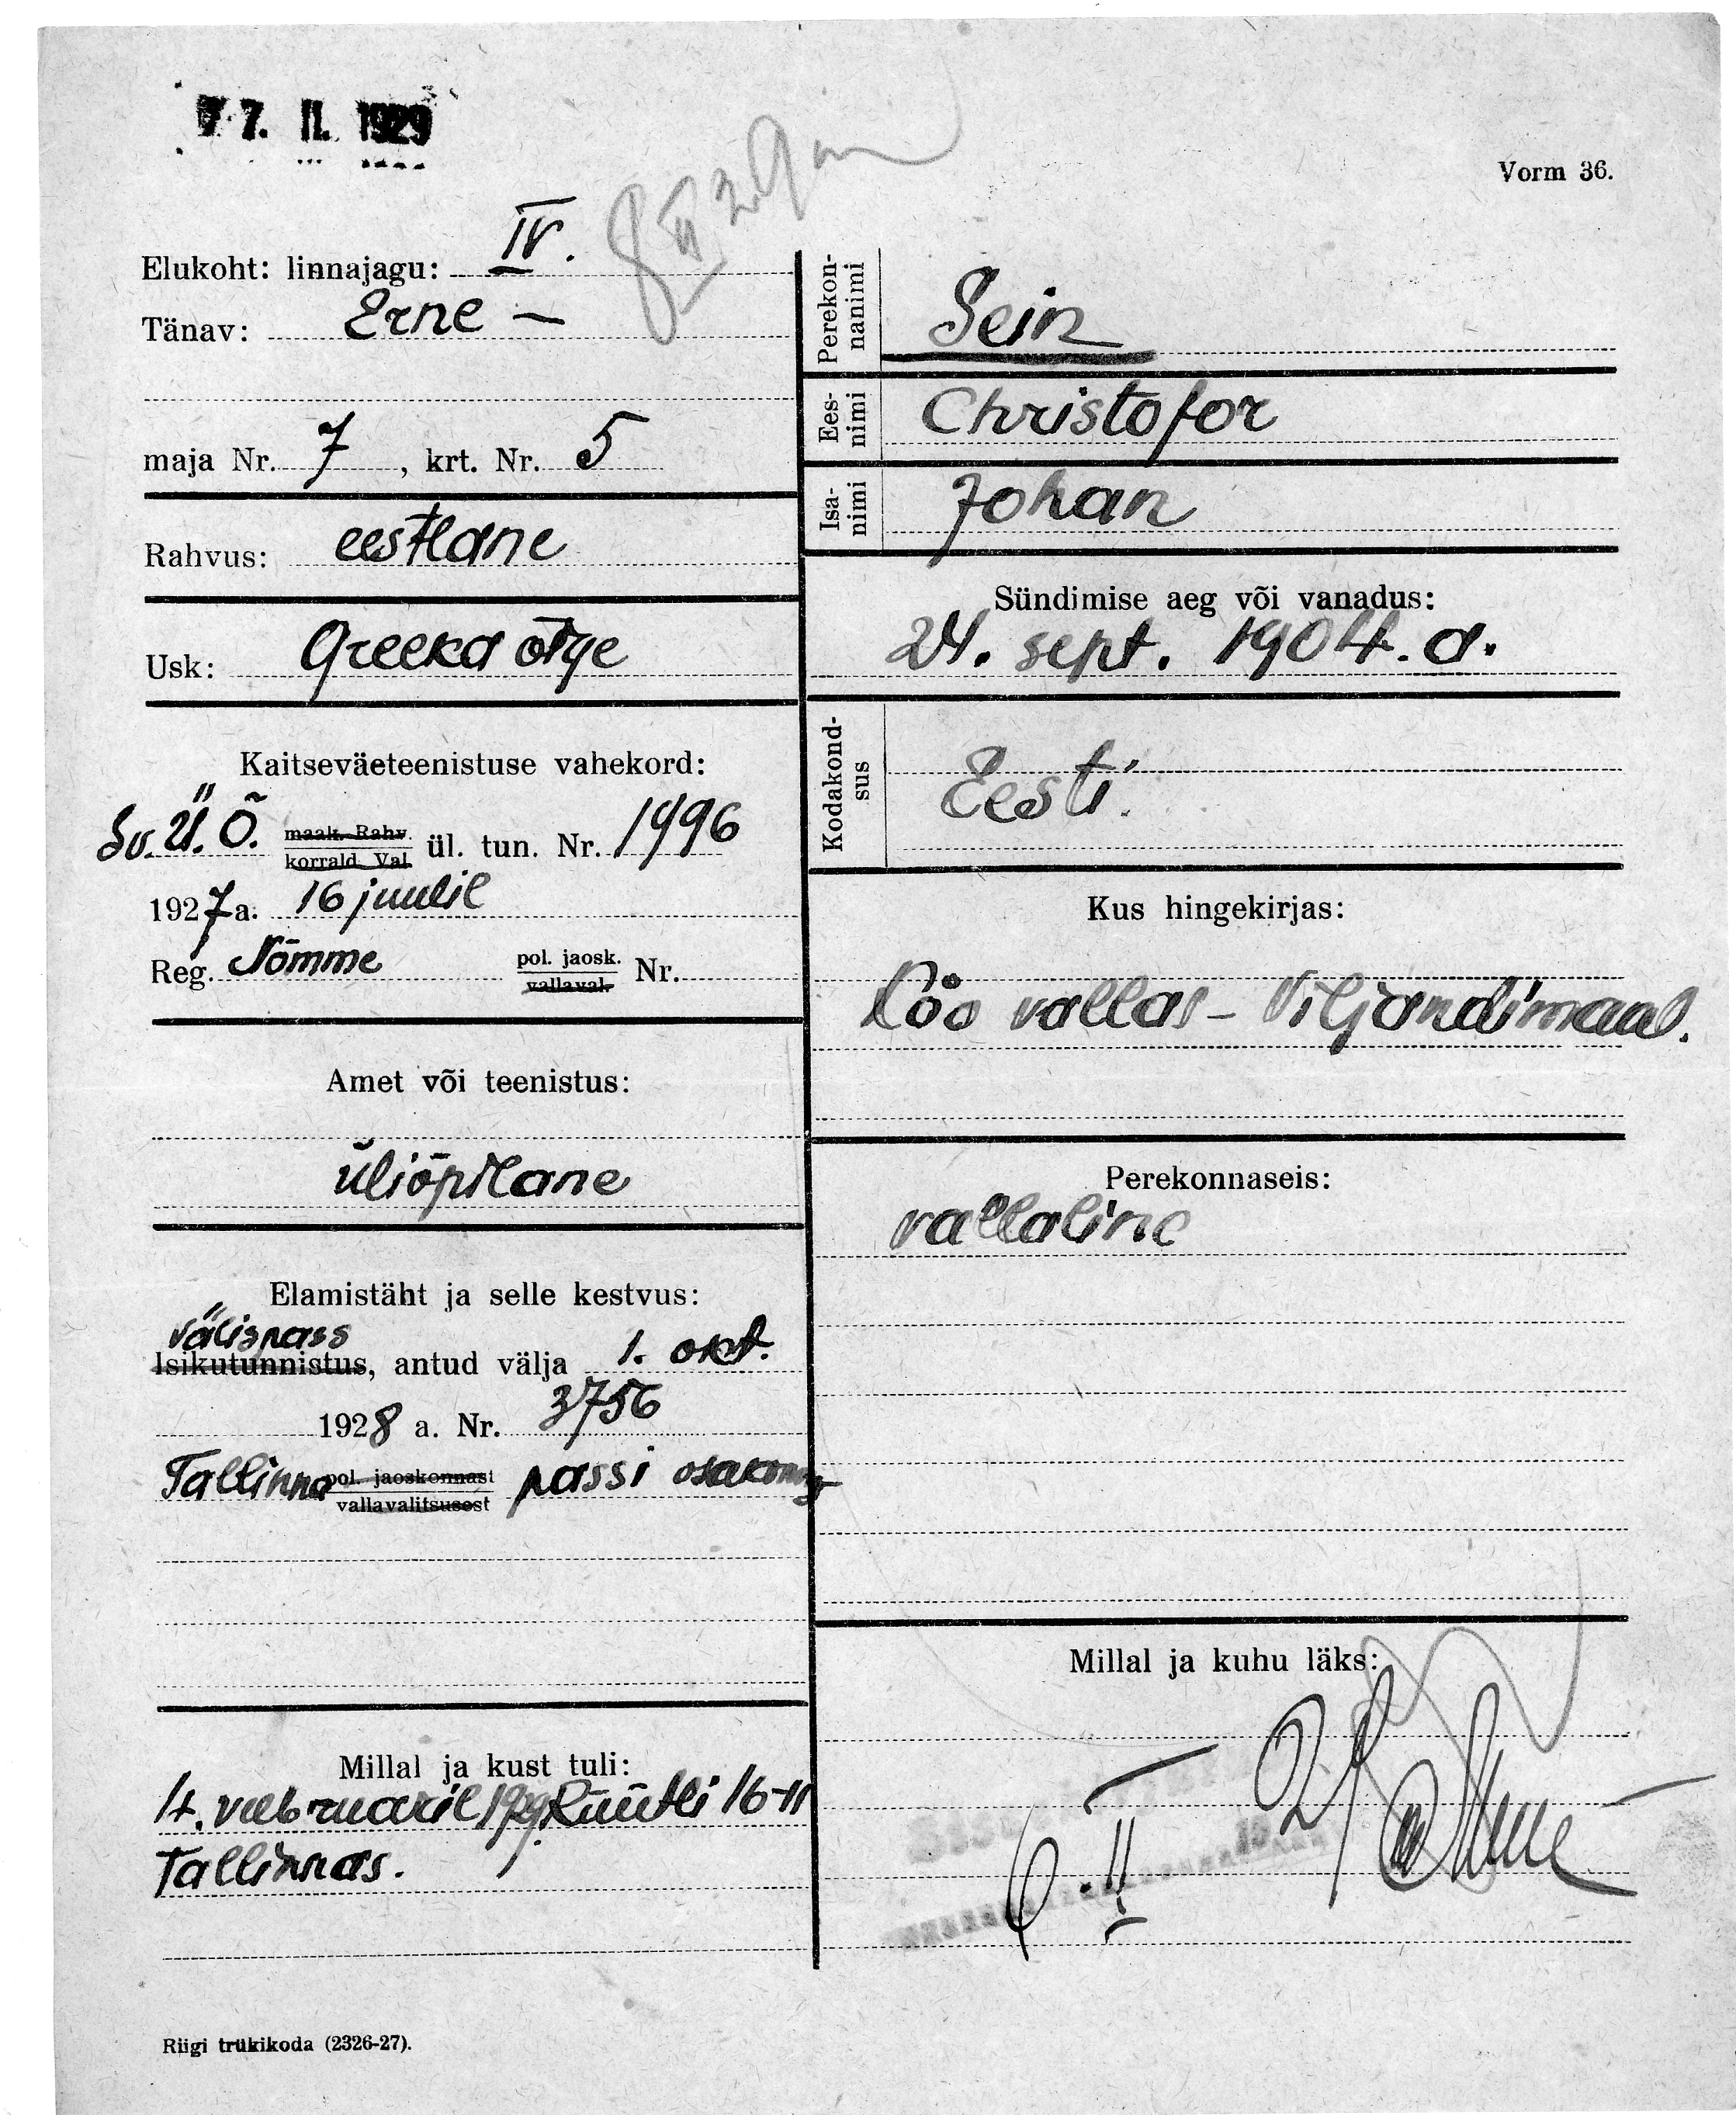 7. II. 1929
Vorm 36.
Elukoht: linnajagu: IV.
Tänav: Erne —
maja Nr. 7, krt. Nr. 5
Rahvus: eestlane
Usk: Greeka õige
Kaitseväeteenistuse vahekord:
Sv. Ü. Õ. maak. Rahv.
korrald. Val. ül. tun. Nr. 1496
1927 a. 16 juulil
Reg. Nõmme pol. jaosk.
vallaval. Nr.
Amet või teenistus:
üliõpilane
Elamistäht ja selle kestvus:
välispass
Isikutunnistus, antud välja 1. okt.
1928 a. Nr. 3756
Tallinna pol. jaoskonnast
vallavalitsusest passi
Millal ja kust tuli:
4. veebruaril 1929 Rüütli 16-11
Tallinnas.
Perekon-
nanimi
Sein
Ees-
nimi
Christofor
Isa-
nimi
Johan
Sündimise aeg või vanadus:
24. sept. 1904. a.
Kodakond-
sus
Eesti.
Kus hingekirjas:
Lõo vallas - Viljandimaal.
Perekonnaseis:
vallaline
Millal ja kuhu läks:
6. II
Riigi trükikoda (2326-27).